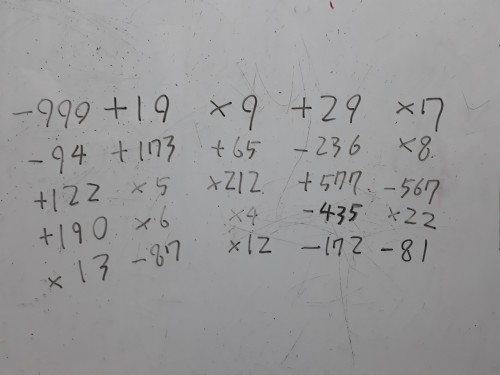 -999 +19 ×9 +29 ×17
-94 +173 +65 -236 ×8
+122 ×5 ×212 +577 -567
+190 ×6 ×4 -435 ×22
×13 -87 ×12 -172 -81